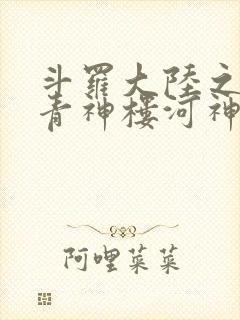 斗羅大陸之
青神樓河神
阿哩菜菜